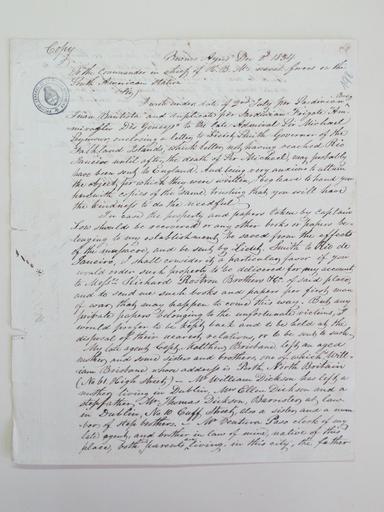 Copy
Buenos Ayres Dec 8th 1834
To the Commander in Chief of H. B. M. naval forces on the
South American Station
Sir,
I wrote under date of 2nd July per Sardinian Brig
Juan Bautista and duplicate per Sardinian Frigate
Des Geneys to the late Admiral Sir Michael
Seymour, enclosing a letter to Lieut. Smith Governor of the
Falkland Islands, which letter not having reached Rio
Janeiro until after the death of Sir Michael, may probably
have been sent to England. And being very anxious to attain
the object for which they were written, I now hand you
herewith copies of the same, trusting that you will have
the kindness to do the needful.
In case the property and papers taken by Captain
Low should be recovered or any other books or papers be-
longing to my establishment, be saved from the effects
of the and be sent by Lieut. Smith to Rio de
Janeiro, I shall consider it a particular favor if you
would order such property to be delivered for my account
to Messrs. Richard Rostron Brothers & Co. of said place,
and to send me such books and papers per first man
of war, that may happen to come this way. But any
private papers belonging to the unfortunate victims, I
would prefer to be kept back and to be held at the
disposal of their nearest relations, or to be sent to such.
My late agent Capt. Matthew Brisbane left an aged
mother, and some sisters and brothers, one of which Will-
iam Brisbane whose address is Perth, North Britain
(No 61 High Street) — Mr William Dickson has left a
mother, living in Dublin, Mrs Dickson and a
stepfather, Mr Thomas Dickson, Barrister at Law
in Dublin, No 10 Cuff Street, also a sister and a num-
ber of step brothers. — Mr Ventura Pass clerk of my
late agent, and brother in law of mine, native of this
place, both parents living in this city, the father